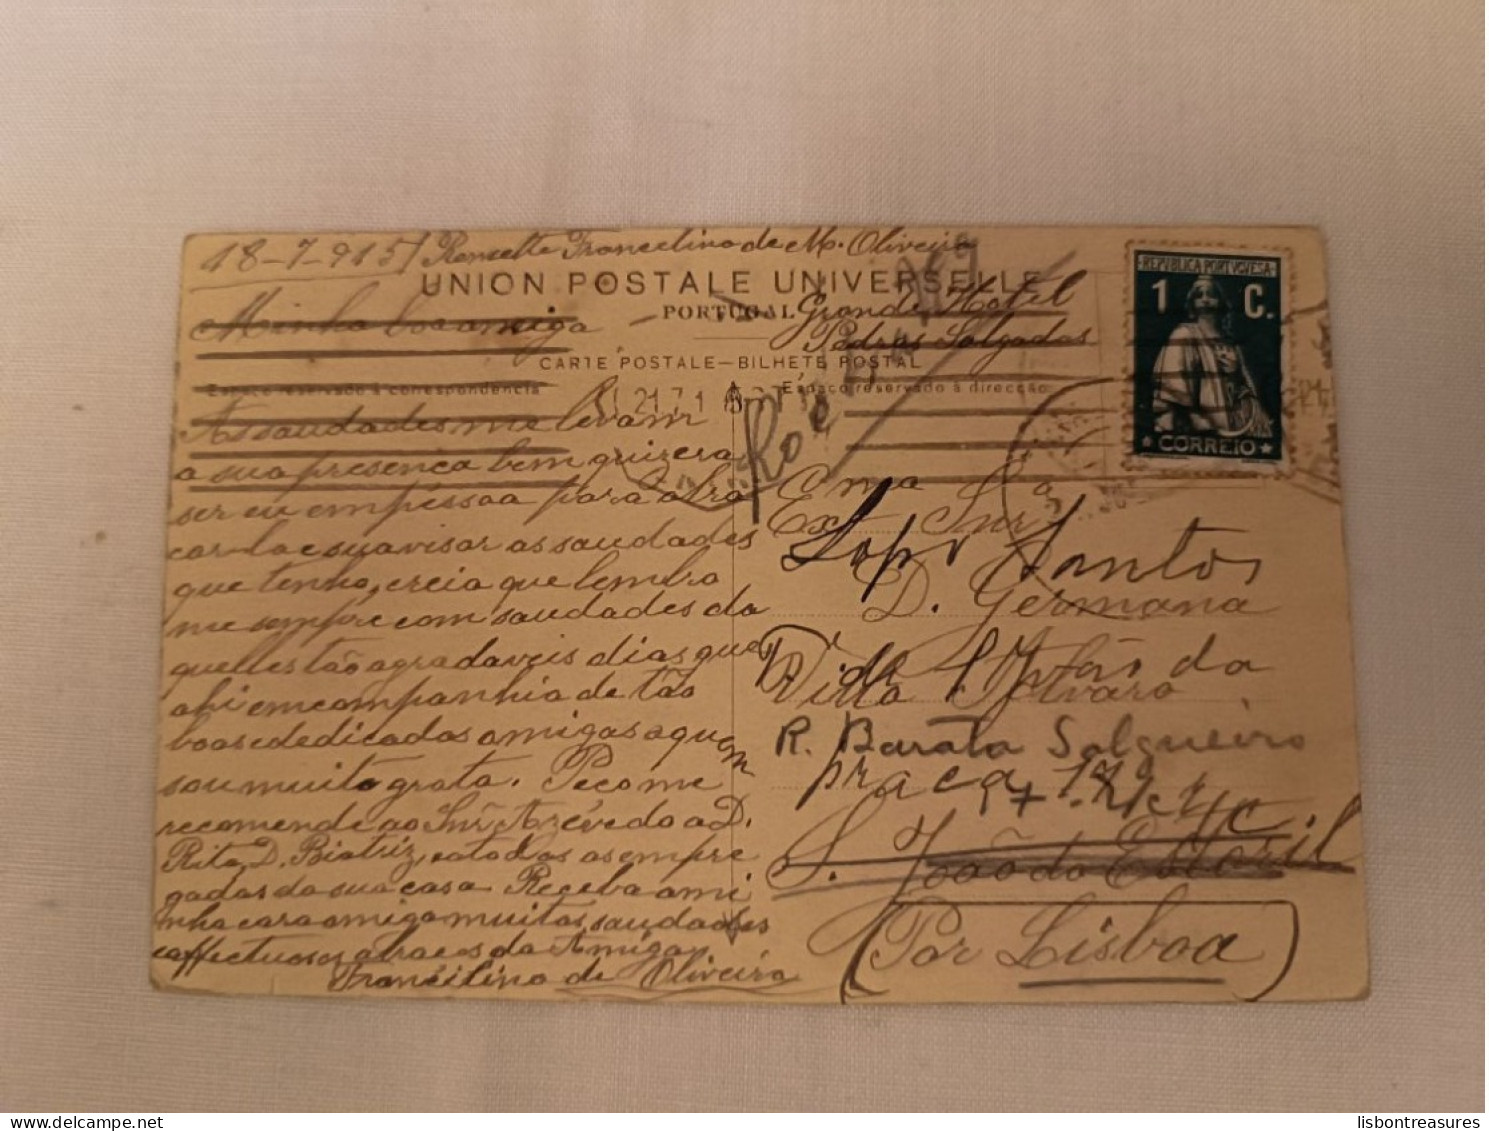 18-7-915 / Remette Francelina de M. Oliveira
UNION POSTALE UNIVERSELLE
PORTUGAL
Grande Hotel
Pedras Salgadas
Minha boa amiga
CARTE POSTALE – BILHETE POSTAL
Espaço reservado á correspondencia
Espaço reservado á direcção
REPUBLICA PORTUGUESA
1 C.
CORREIO
As saudades me levam
a sua presença bem quizera
ser eu em pessoa para abra
car-la e suavisar as saudades
que tenho, creia que lembro
me sempre com saudades da
quelles tão agradaveis dias que
ahi em companhia de tão
boas e dedicadas amigas a quem
sou muito grata. Peço me
recomende ao Snr Azevêdo a D.
Rita, D. Biatriz, e a todas as empre
gadas da sua casa. Receba a mi
nha cara amiga muitas saudades
e affectuosos abraços da Amiga
Francilina de Oliveira
Exma Snra
Santos
D. Germana
Villa Alvaro
R. Barata Salgueiro
praca
S. João do Estoril
(Por Lisboa)
lisbontreasures
delcampe.net